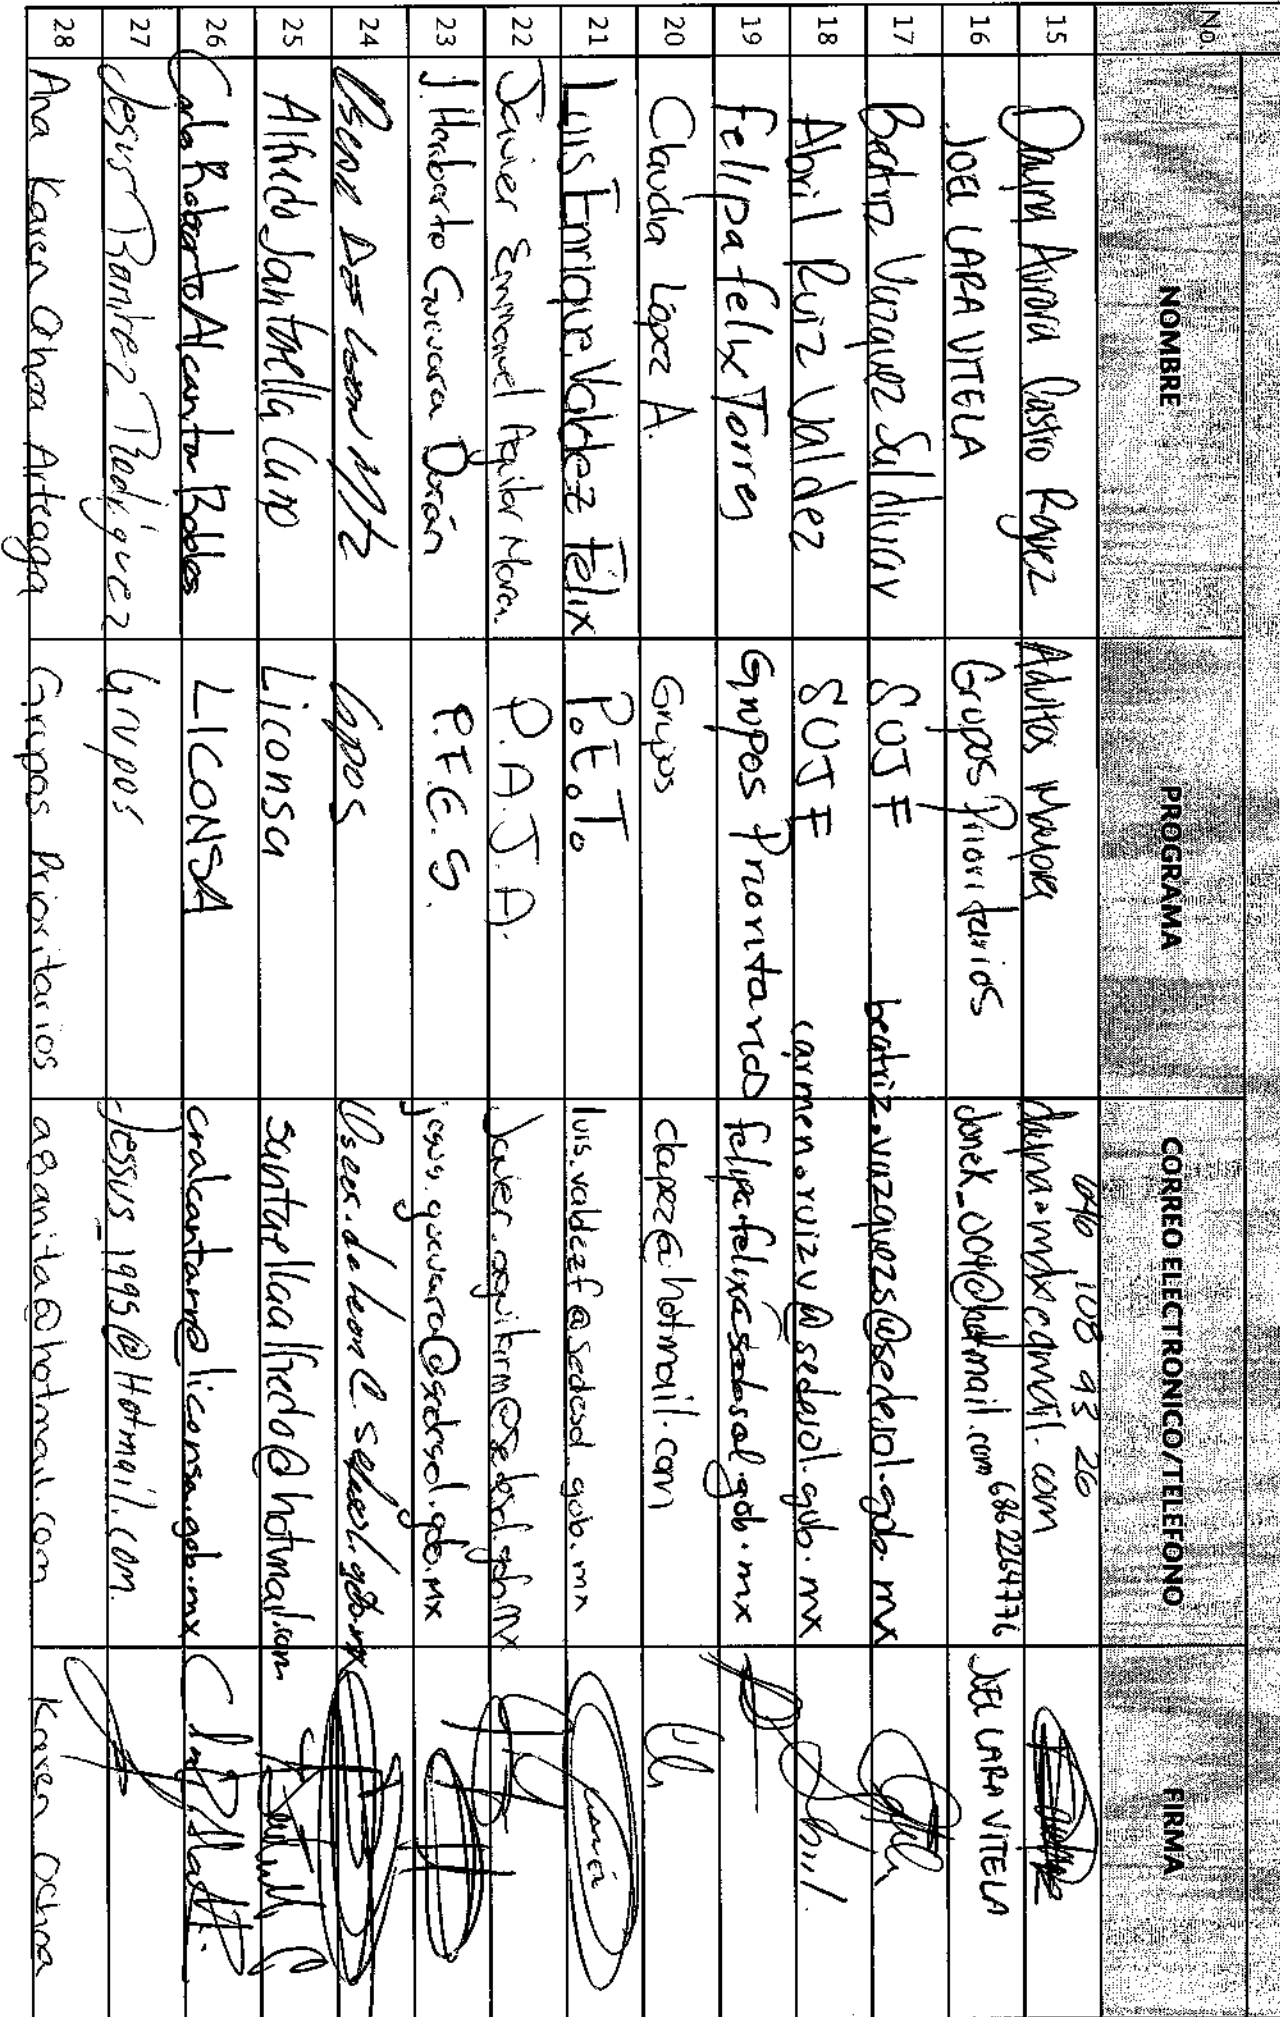 No. NOMBRE PROGRAMA CORREO ELECTRONICO/TELEFONO FIRMA
646 108 93 26
15 Dayna Aurora Castro Adultos Mayores
16 JOEL LARA VITELA Grupos Prioritarios Jonek_004@hotmail.com 6862264776 JOEL LARA VITELA
17 Beatriz Vazquez Saldivar SUJF beatriz.vazquezs@sedesol.gob.mx
18 Abril Ruiz Valdez SUJF carmen.ruizv@sedesol.gob.mx Abril
19 Felipa felix Torres Grupos Prioritarios felipa.felix@sedesol.gob.mx
20 Claudia López A. Grupos clapez@hotmail.com
21 Luis Enrique Valdez Félix P.E.T. luis.valdezf@sedesol.gob.mx
22 Javier Emmanuel Aguilar Mora P.A.J.A. Javier.aguilarm@sedesol.gob.mx
23 J. Heriberto Guevara Durán P.F.E.S. jesus.guevara@sedesol.gob.mx
24 Oscar De Leon Mtz Gpos Oscar.deleon@sedesol.gob.mx
25 Alfredo Santaella Cano Liconsa santaellaalfredo@hotmail.com
26 Carlos Roberto Alcantar Robles LICONSA cralcantarr@liconsa.gob.mx
27 Jesus Ramirez Rodriguez Grupos Jessus_1995@Hotmail.com.
28 Ana Karen Ochoa Arteaga Grupos Prioritarios a8anita@hotmail.com Karen Ochoa